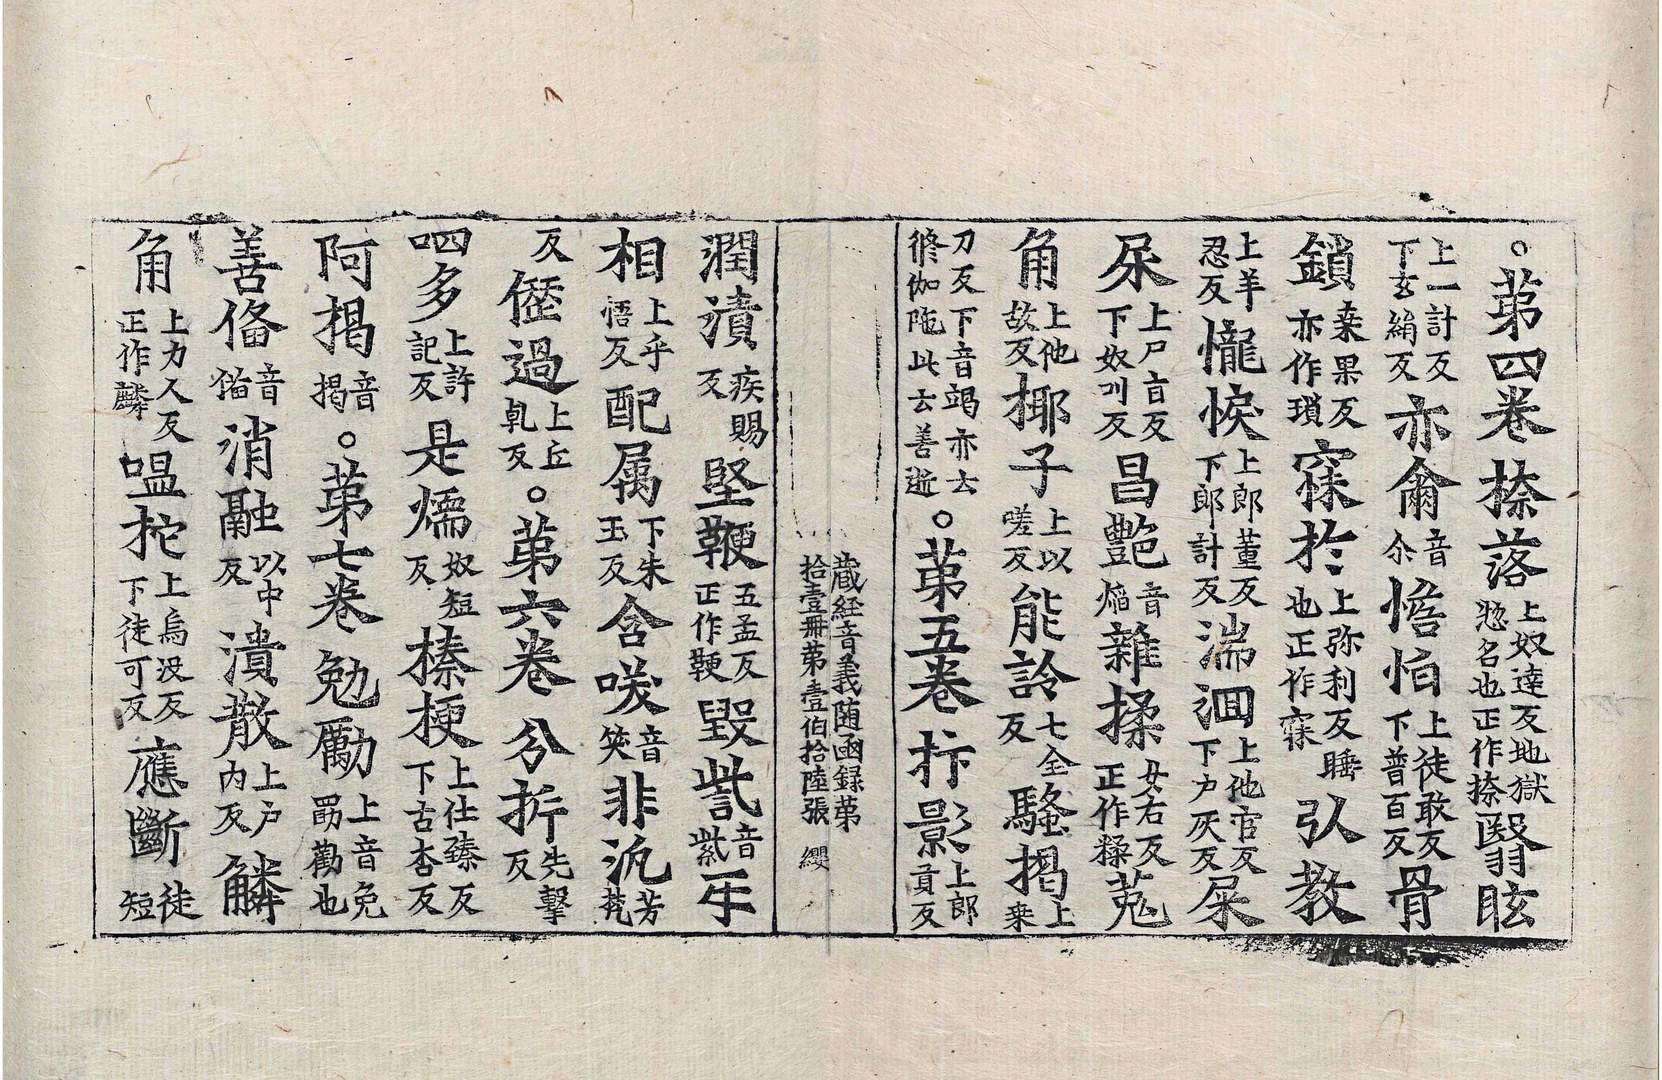 ○第四卷 捺落上奴達反地獄惣名也正作捺翳眩
上一計反下玄絹反亦爾音尒憺怕上徒敢反下普百反骨
鎖桒果反亦作瑣寐於上弥利反睡也正作寐弘教
上羊忍反㦬悷上郎董反下郎計反湍洄上他官反下户灰反屎
尿上尸旨反下奴叫反昌艷音焔雜揉女右反正作糅菟
角上他故反椰子上以嗟反能詅七全反騷揭上桒
刀反下音竭亦云修伽陁此云善逝○第五卷 抃影上郎貢反
藏經音義随函録第拾壹冊第壹伯拾陸張 纓
潤漬疾賜反堅鞭五孟反正作鞕毀訾音紫乐
相上乎悟反配属下朱玉反含唉音笑非汎芳梵
反𠎝過上丘乹反○第六卷 分折先擊反
呬多上許記反是煗奴短反榛梗上仕臻反下古杏反
阿揭音揭○第七卷 勉勵上音免勗勸也
善俻音猫消融以中反潰散上户内反鱗
角上力人反正作麟嗢拕上烏没反下徒可反應斷徒短